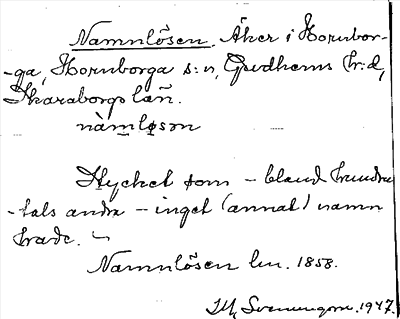 Namnlösen. Åker i Hornbor-
-ga, Hornborga s:n, Gudhems h:d,
Skaraborgs län.
nàmløsən
Stycket som – bland hundra
-tals andra – inget (annat) namn
hade.
Namnlösen lm. 1858.
Svenungson. 1947.